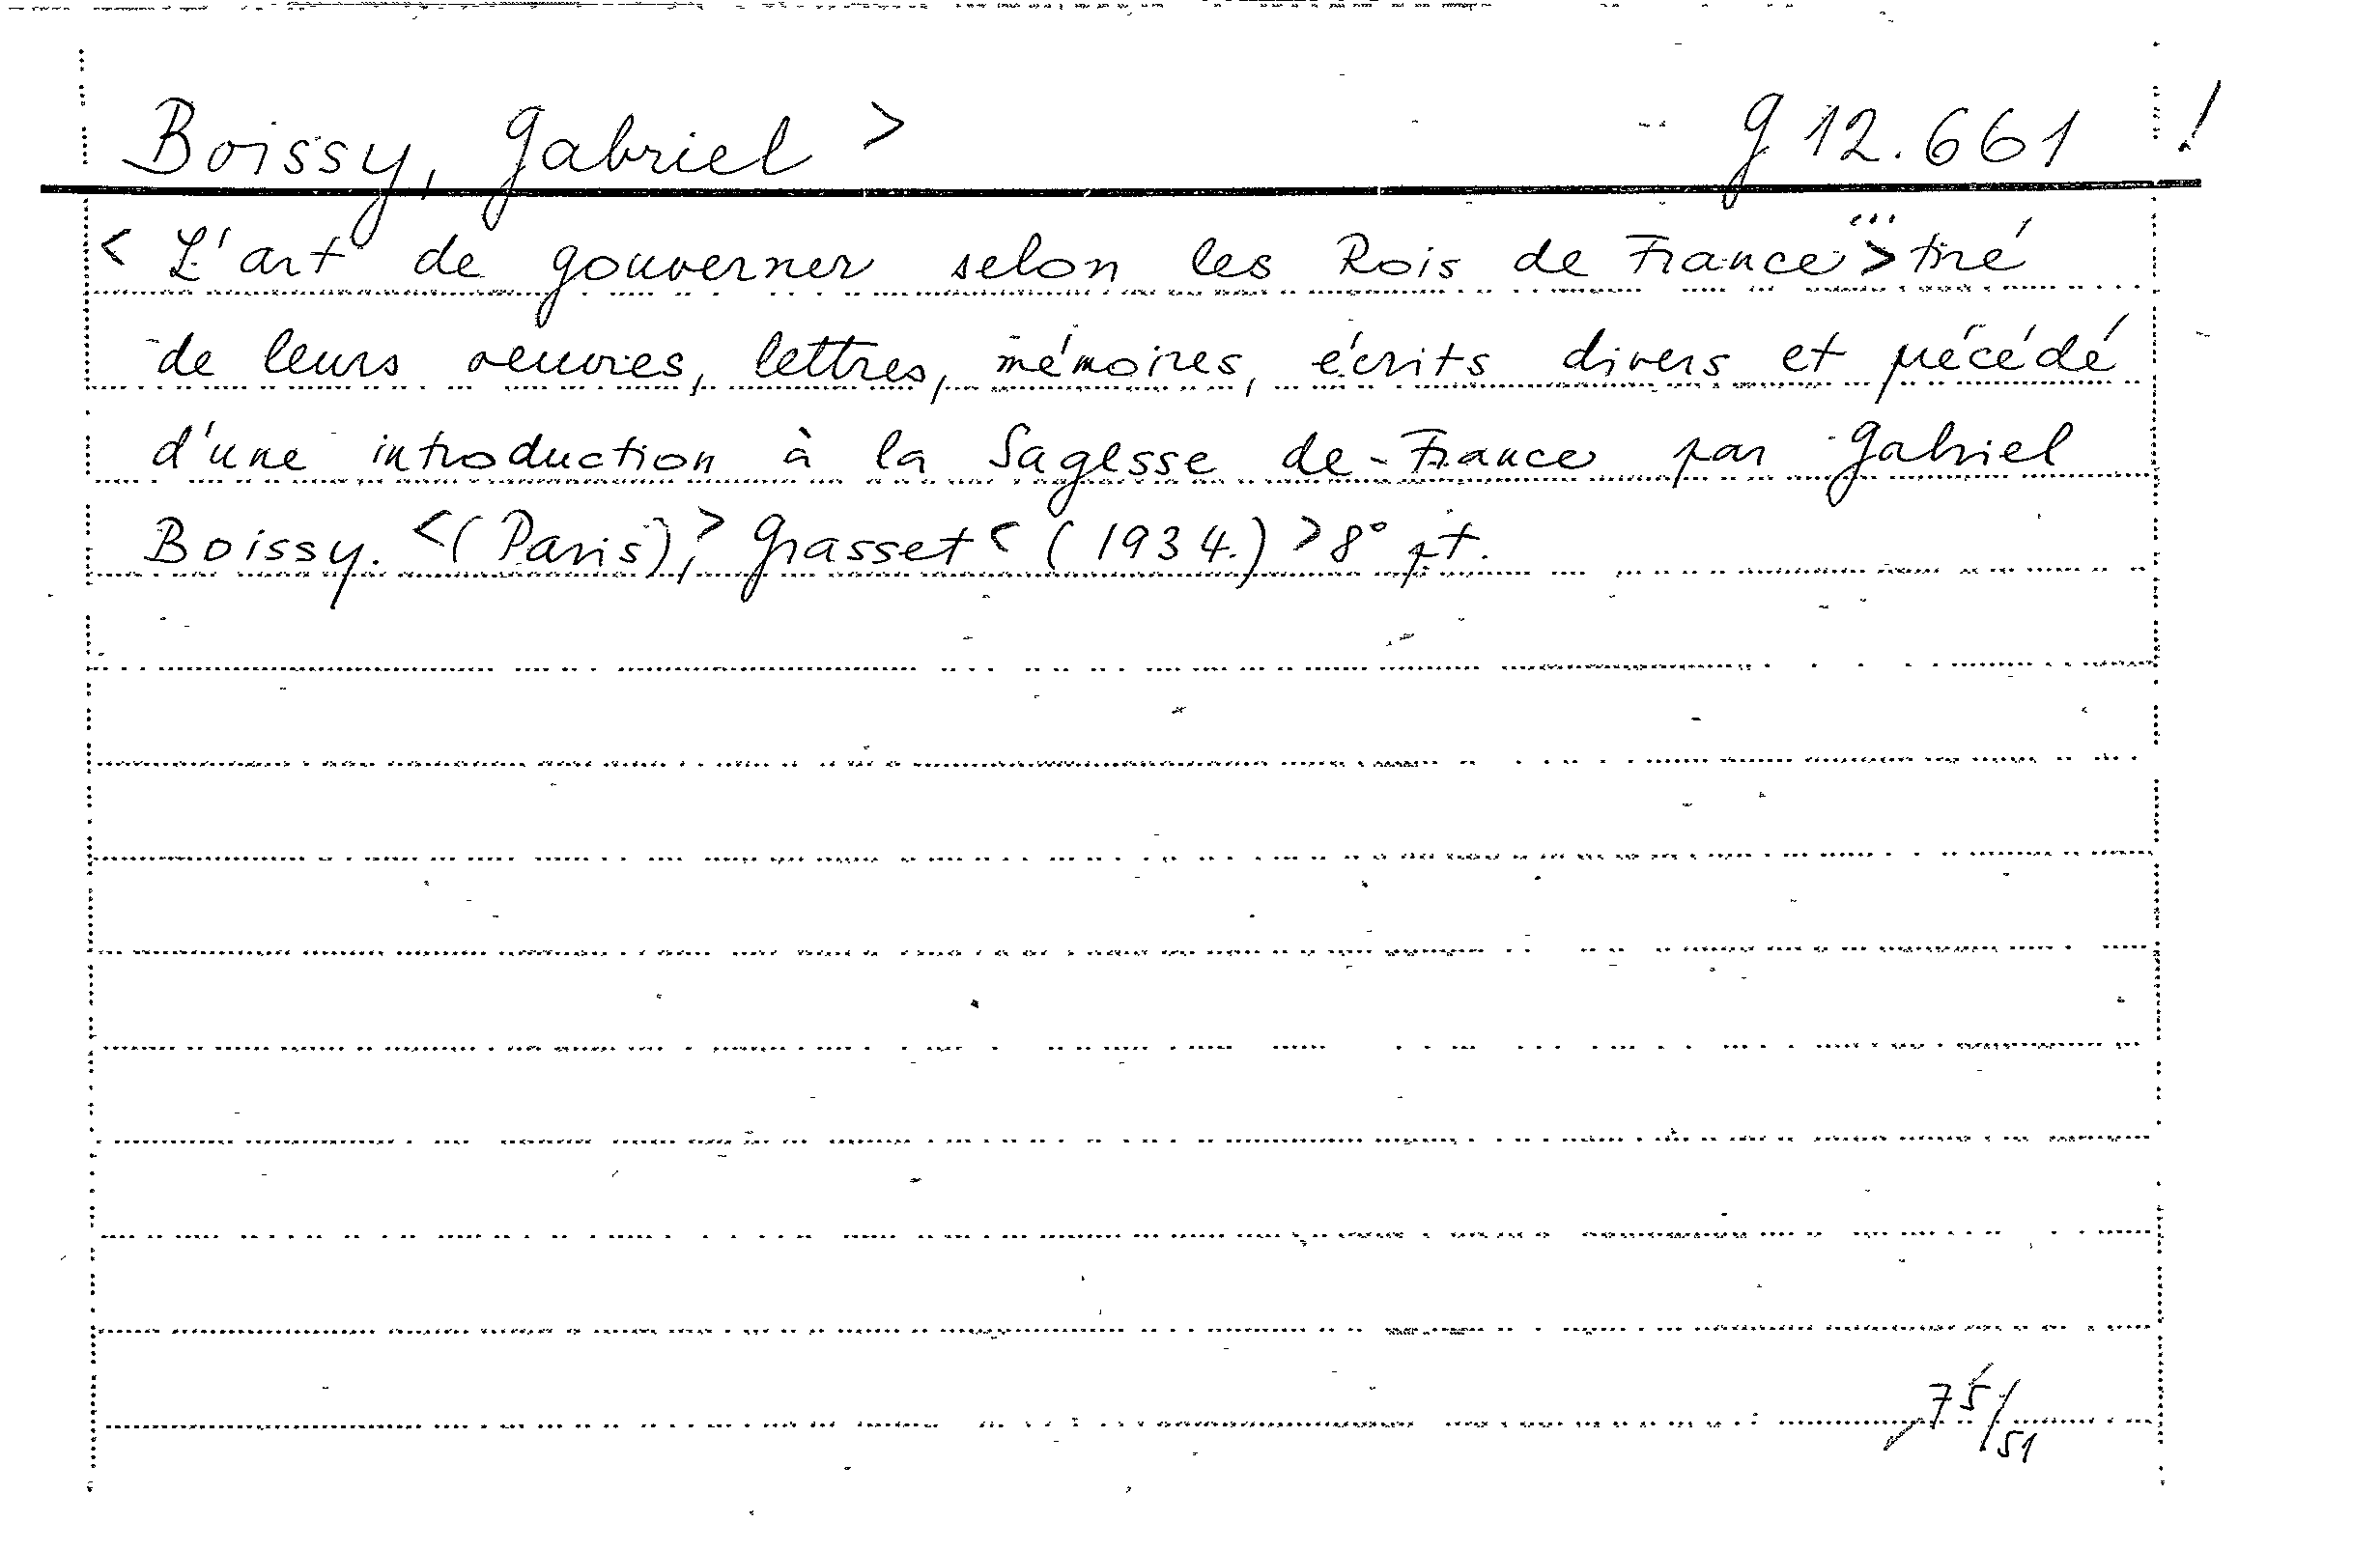 Boissy, Gabriel > G 12.661 !
< L'art de gouverner selon les Rois de France ...> tiré
de leurs oeuvres, lettres, mémoires, écrits divers et précédé
d'une introduction à la Sagesse de France par Gabriel
Boissy. <(Paris),> Grasset < (1934.) > 8° pt.
75/51